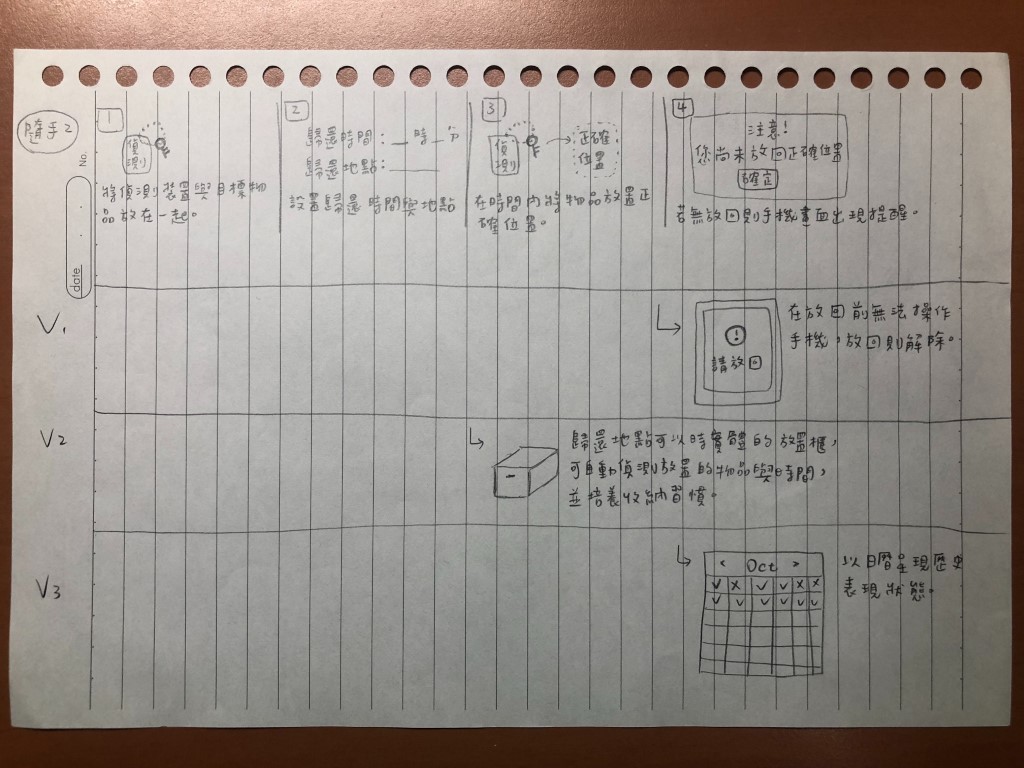 隨手2
No.
date
1
偵測
將偵測裝置與目標物
品放在一起。
2
歸還時間:__時__分
歸還地點:____
設置歸還時間與地點
3
偵測
正確
位置
在時間內將物品放置正
確位置。
4
注意!
您尚未放回正確位置
確定
若無放回則手機畫面出現提醒。
V1
!
請放回
在放回前無法操作
手機,放回則解除。
V2
歸還地點可以時實體的放置櫃,
可自動偵測放置的物品與時間,
並培養收納習慣。
V3
< Oct >
✓ x ✓ ✓ x x
✓ ✓ ✓ ✓ ✓ ✓
以日曆呈現歷史
表現狀態。